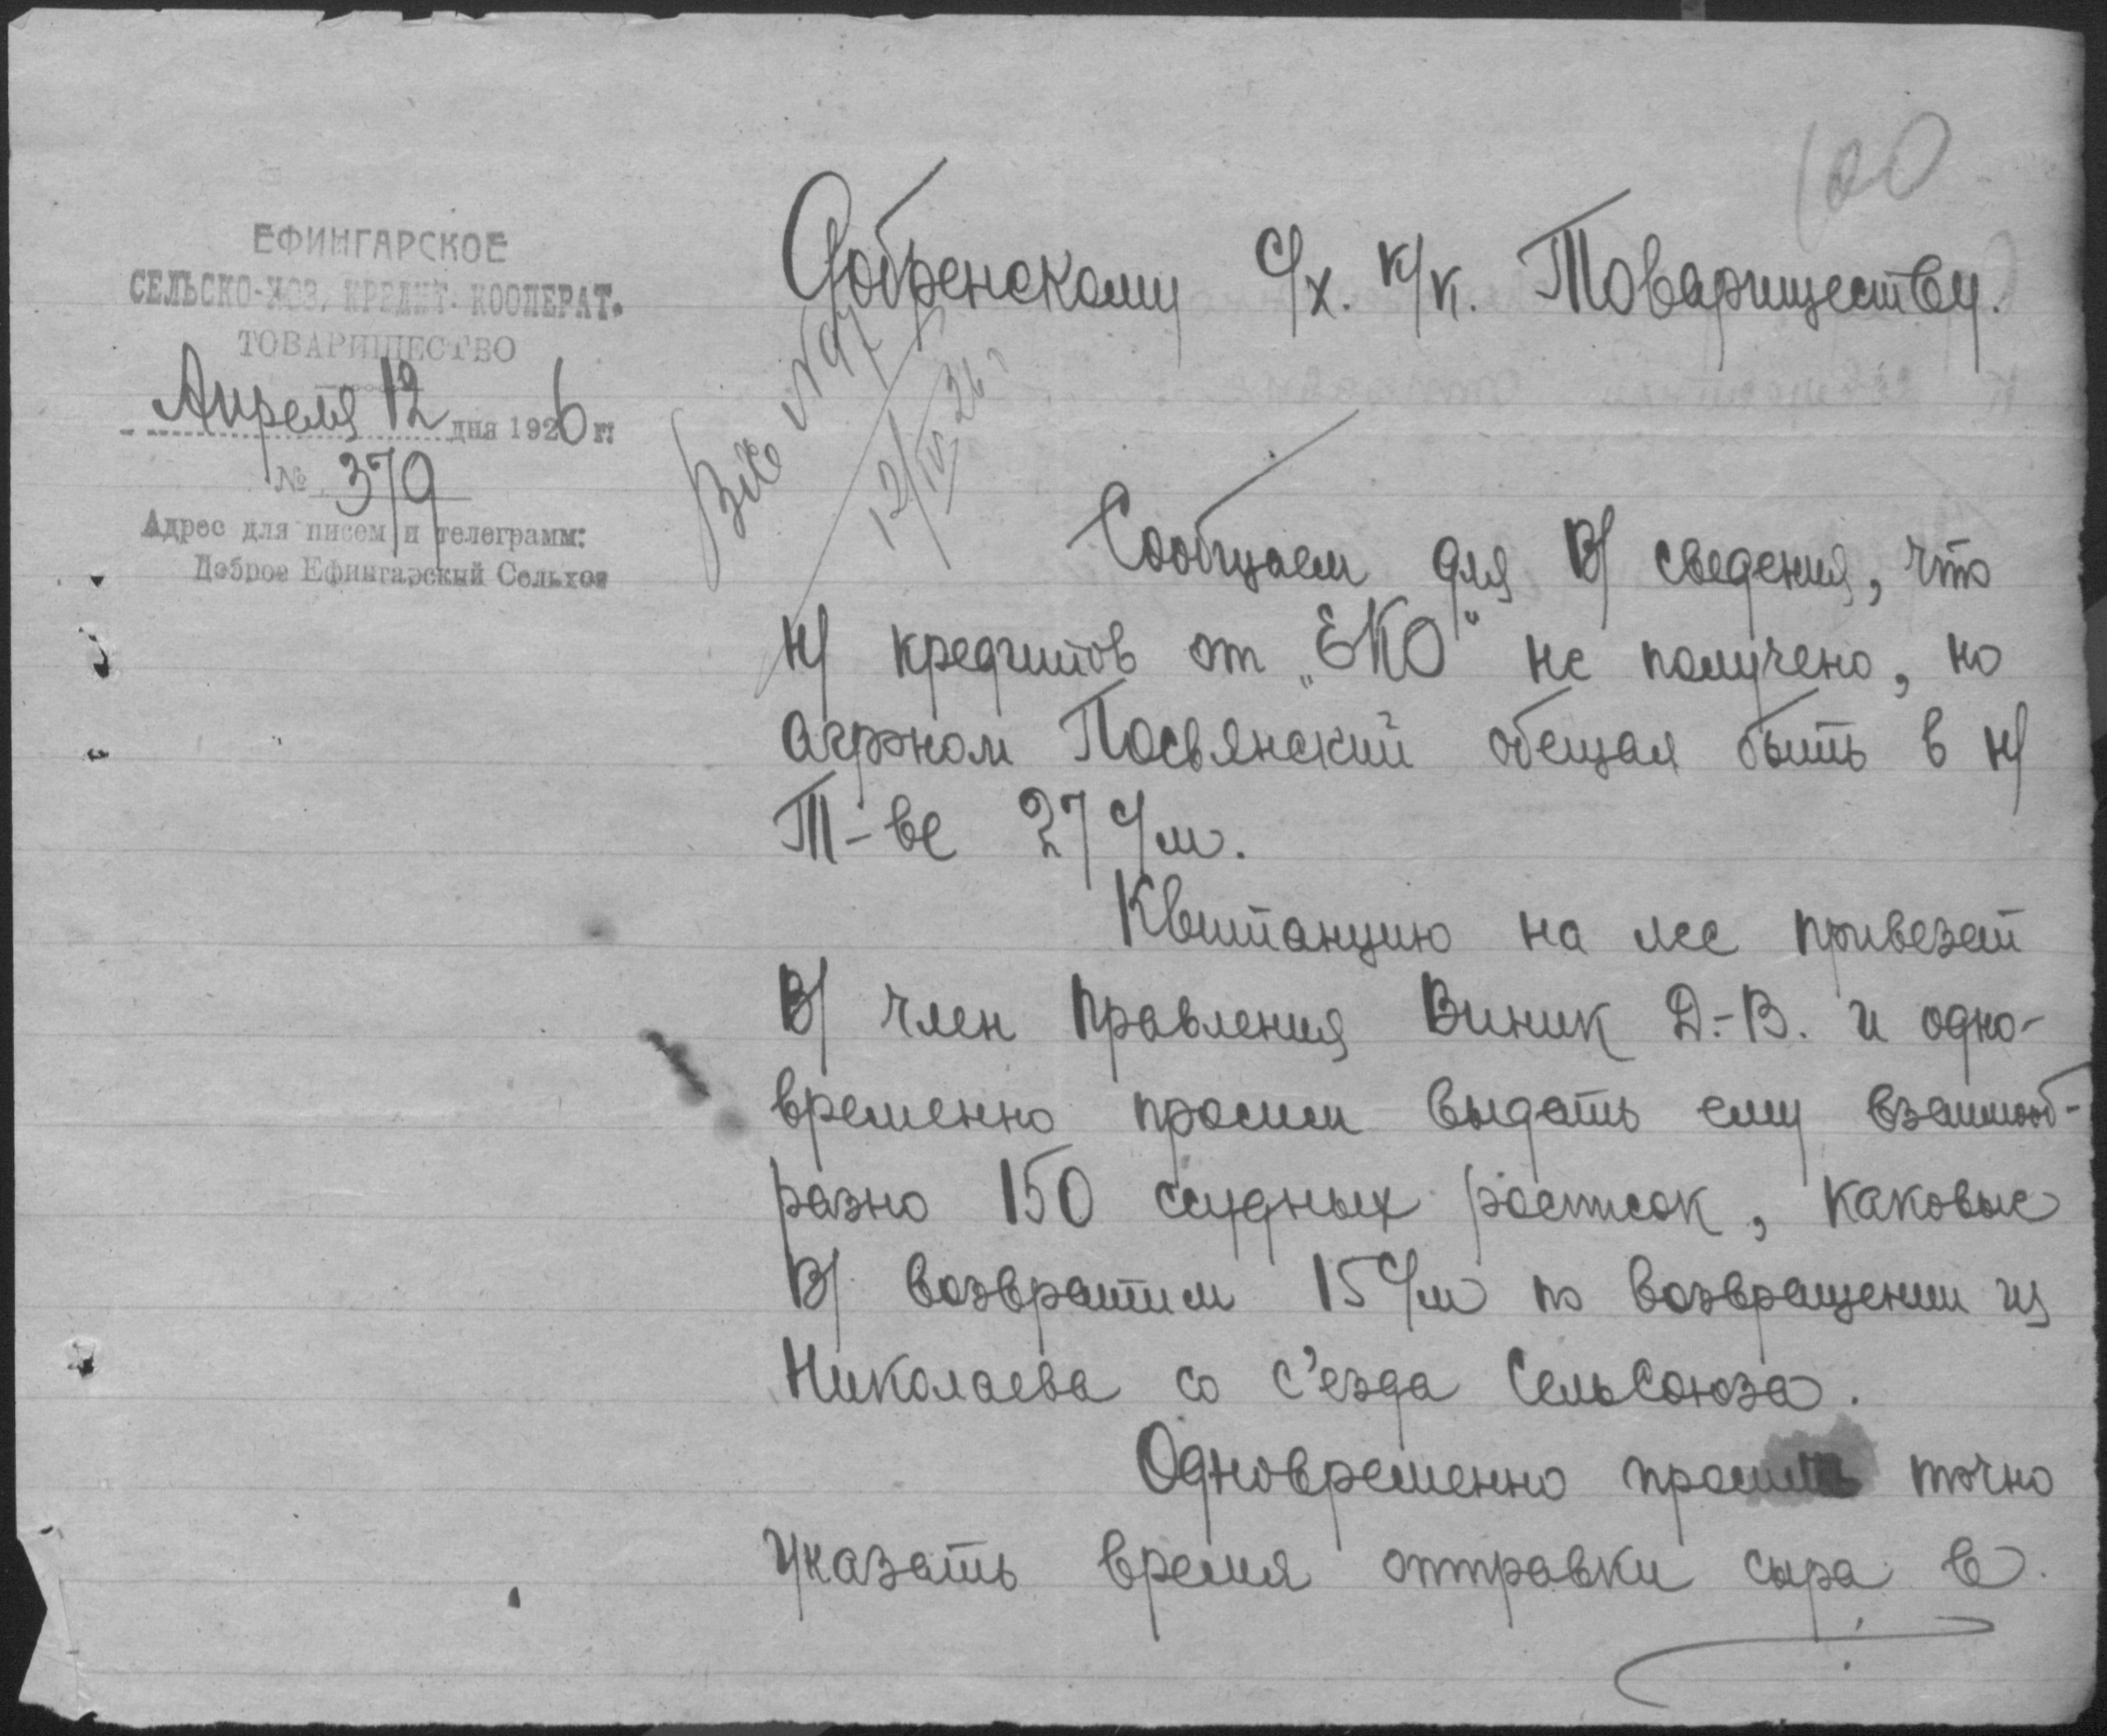 100
ЕФИНГАРСКОЕ
СЕЛЬСКО-ХОЗ. КРЕДИТ. КООПЕРАТ.
ТОВАРИЩЕСТВО
Апреля 12 дня 1926 г.
№ 379
Адрес для писем и телеграмм:
Доброе Ефингарский Сельхоз
Добренскому с/х. к/к. Товариществу.
Вх № 97
12/IV 26 г
Сообщаем для В/ сведения, что
н/ кредитов от „ЕКО" не получено, но
агроном Посвянский обещал быть в н/
Т-ве 27 с/м.
Квитанцию на лес привезет
В/ член Правления Виник Д.-В. и одно-
временно просим выдать ему взаимооб-
разно 150 ссудных росписок, каковые
В/ возвратим 15 с/м по возвращении из
Николаева со с'езда СельСоюза.
Одновременно просим точно
указать время отправки сыра в